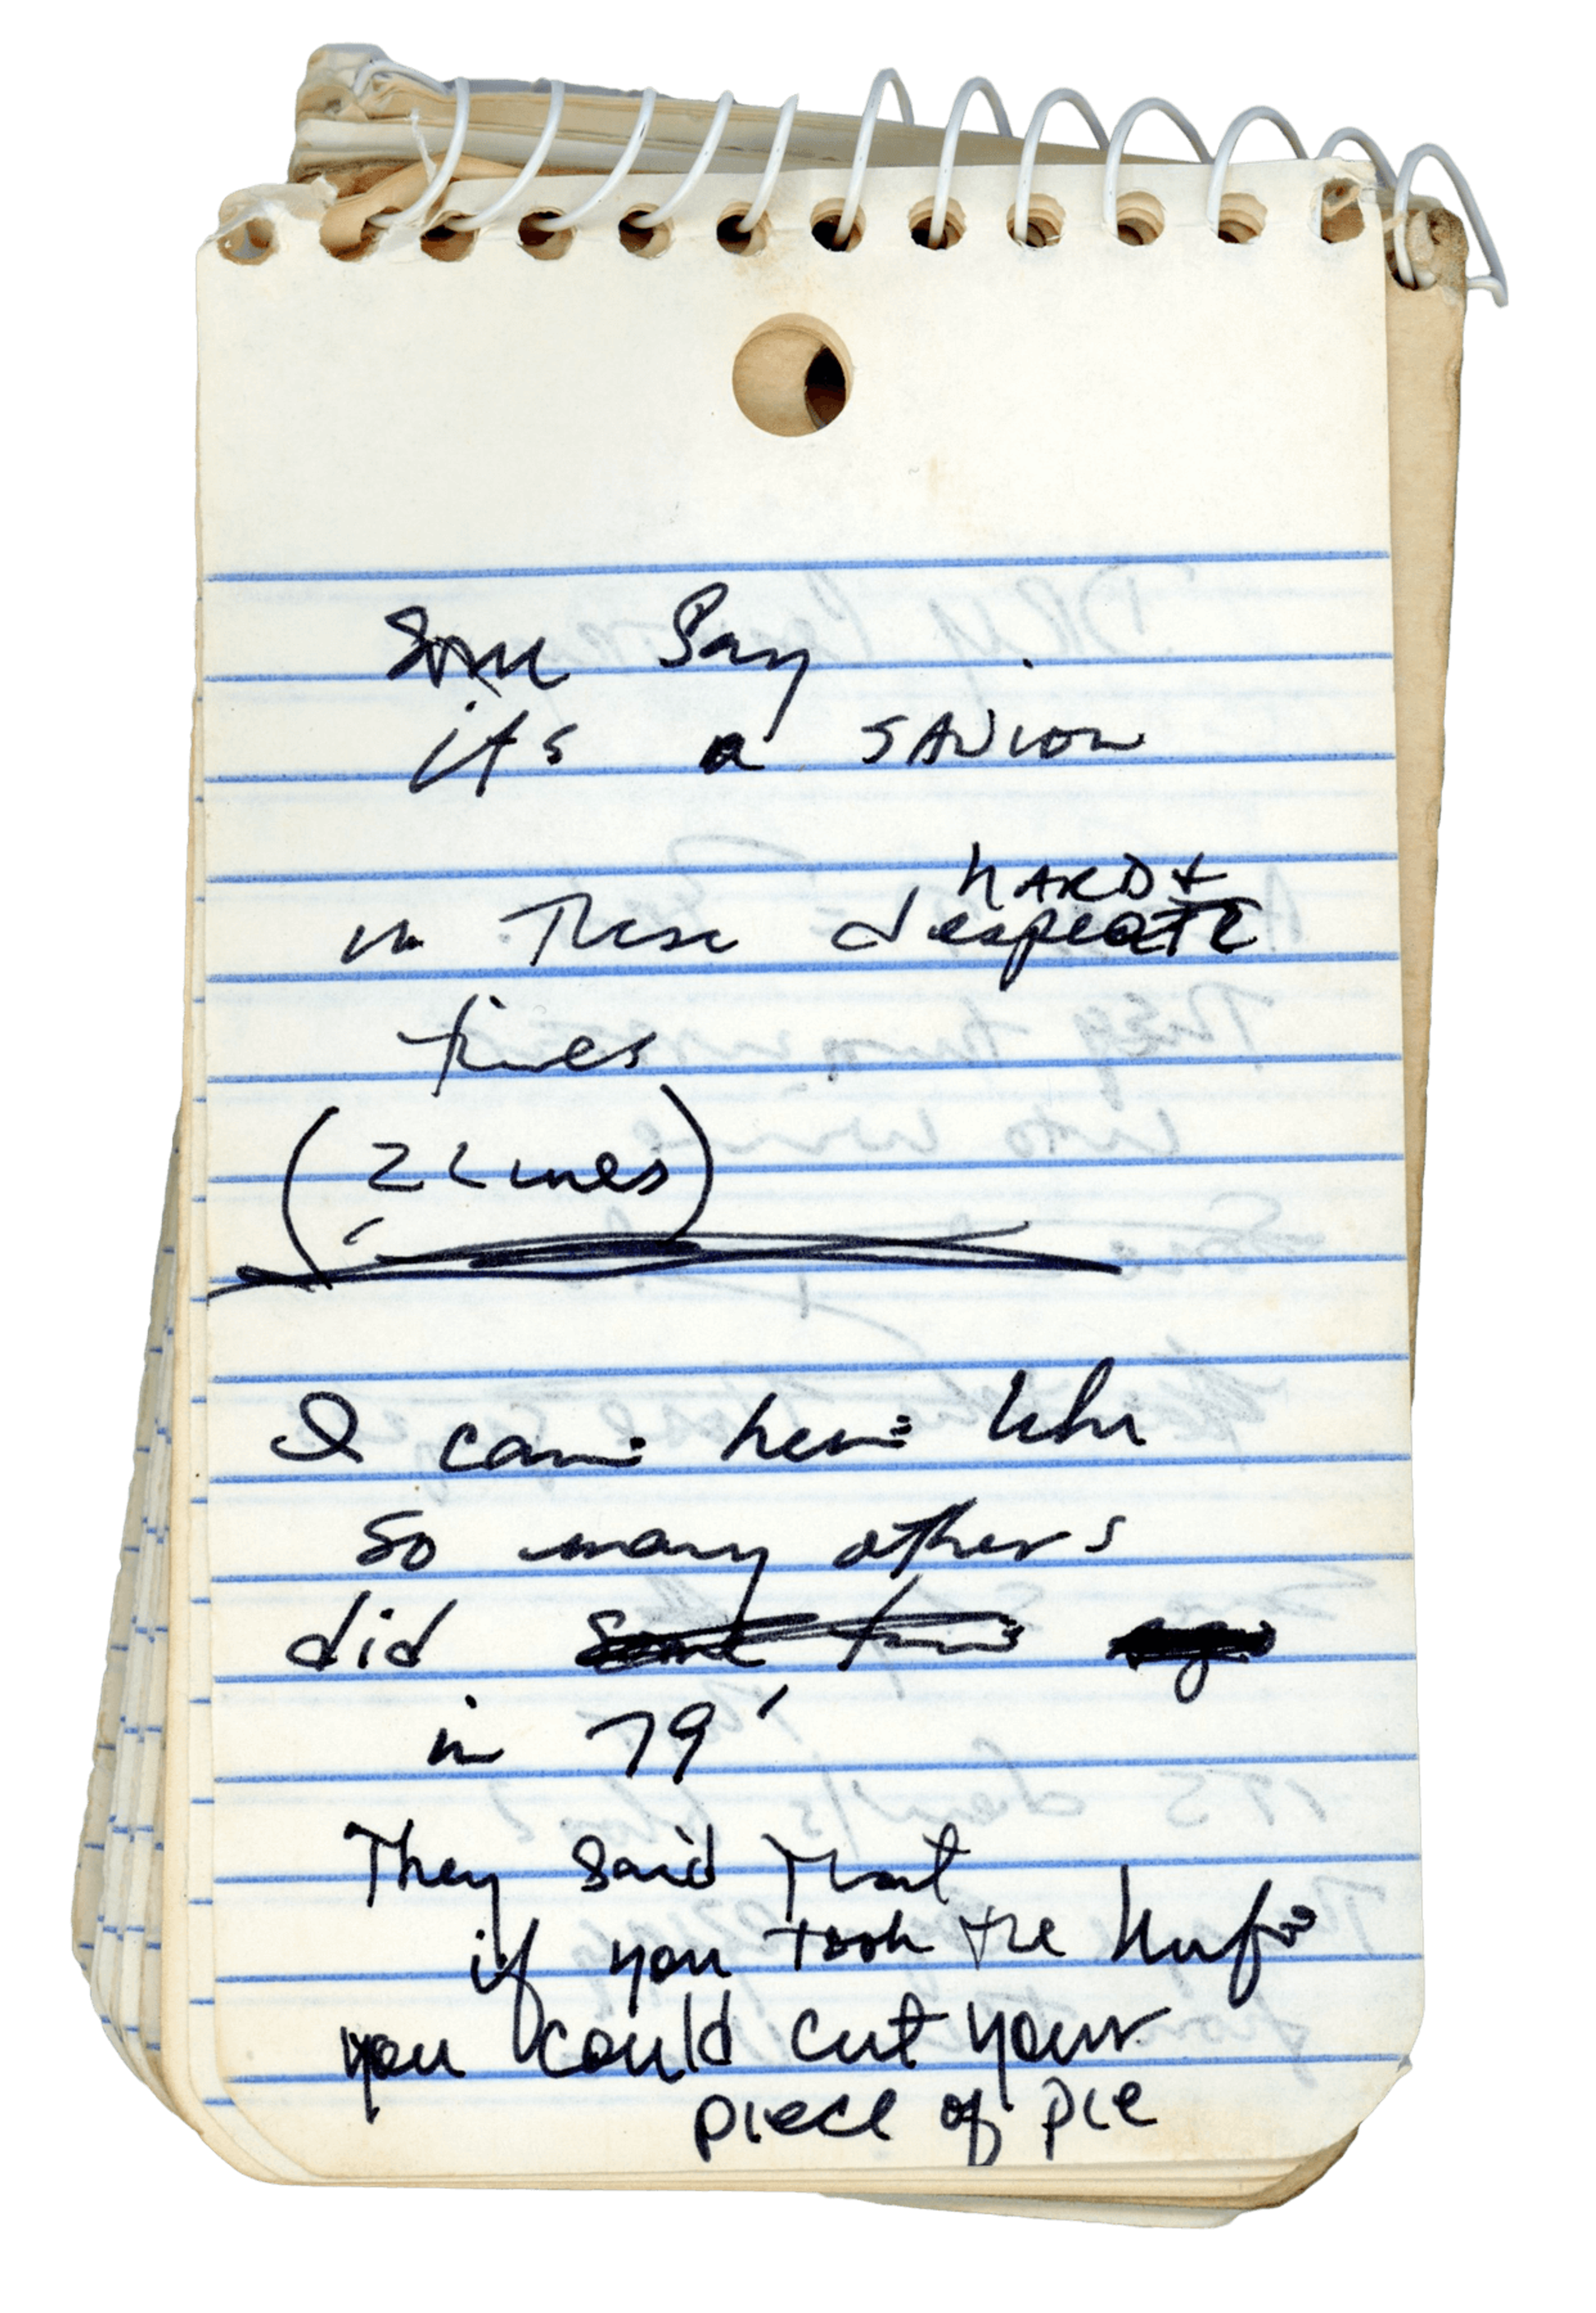 Some Say
its a SAVior
HARD +
in These desperate
times
(2 Lines)
I came here like
So many others
did some time ago
in 79'
They said That
if you took the knife
you could cut your
piece of pie